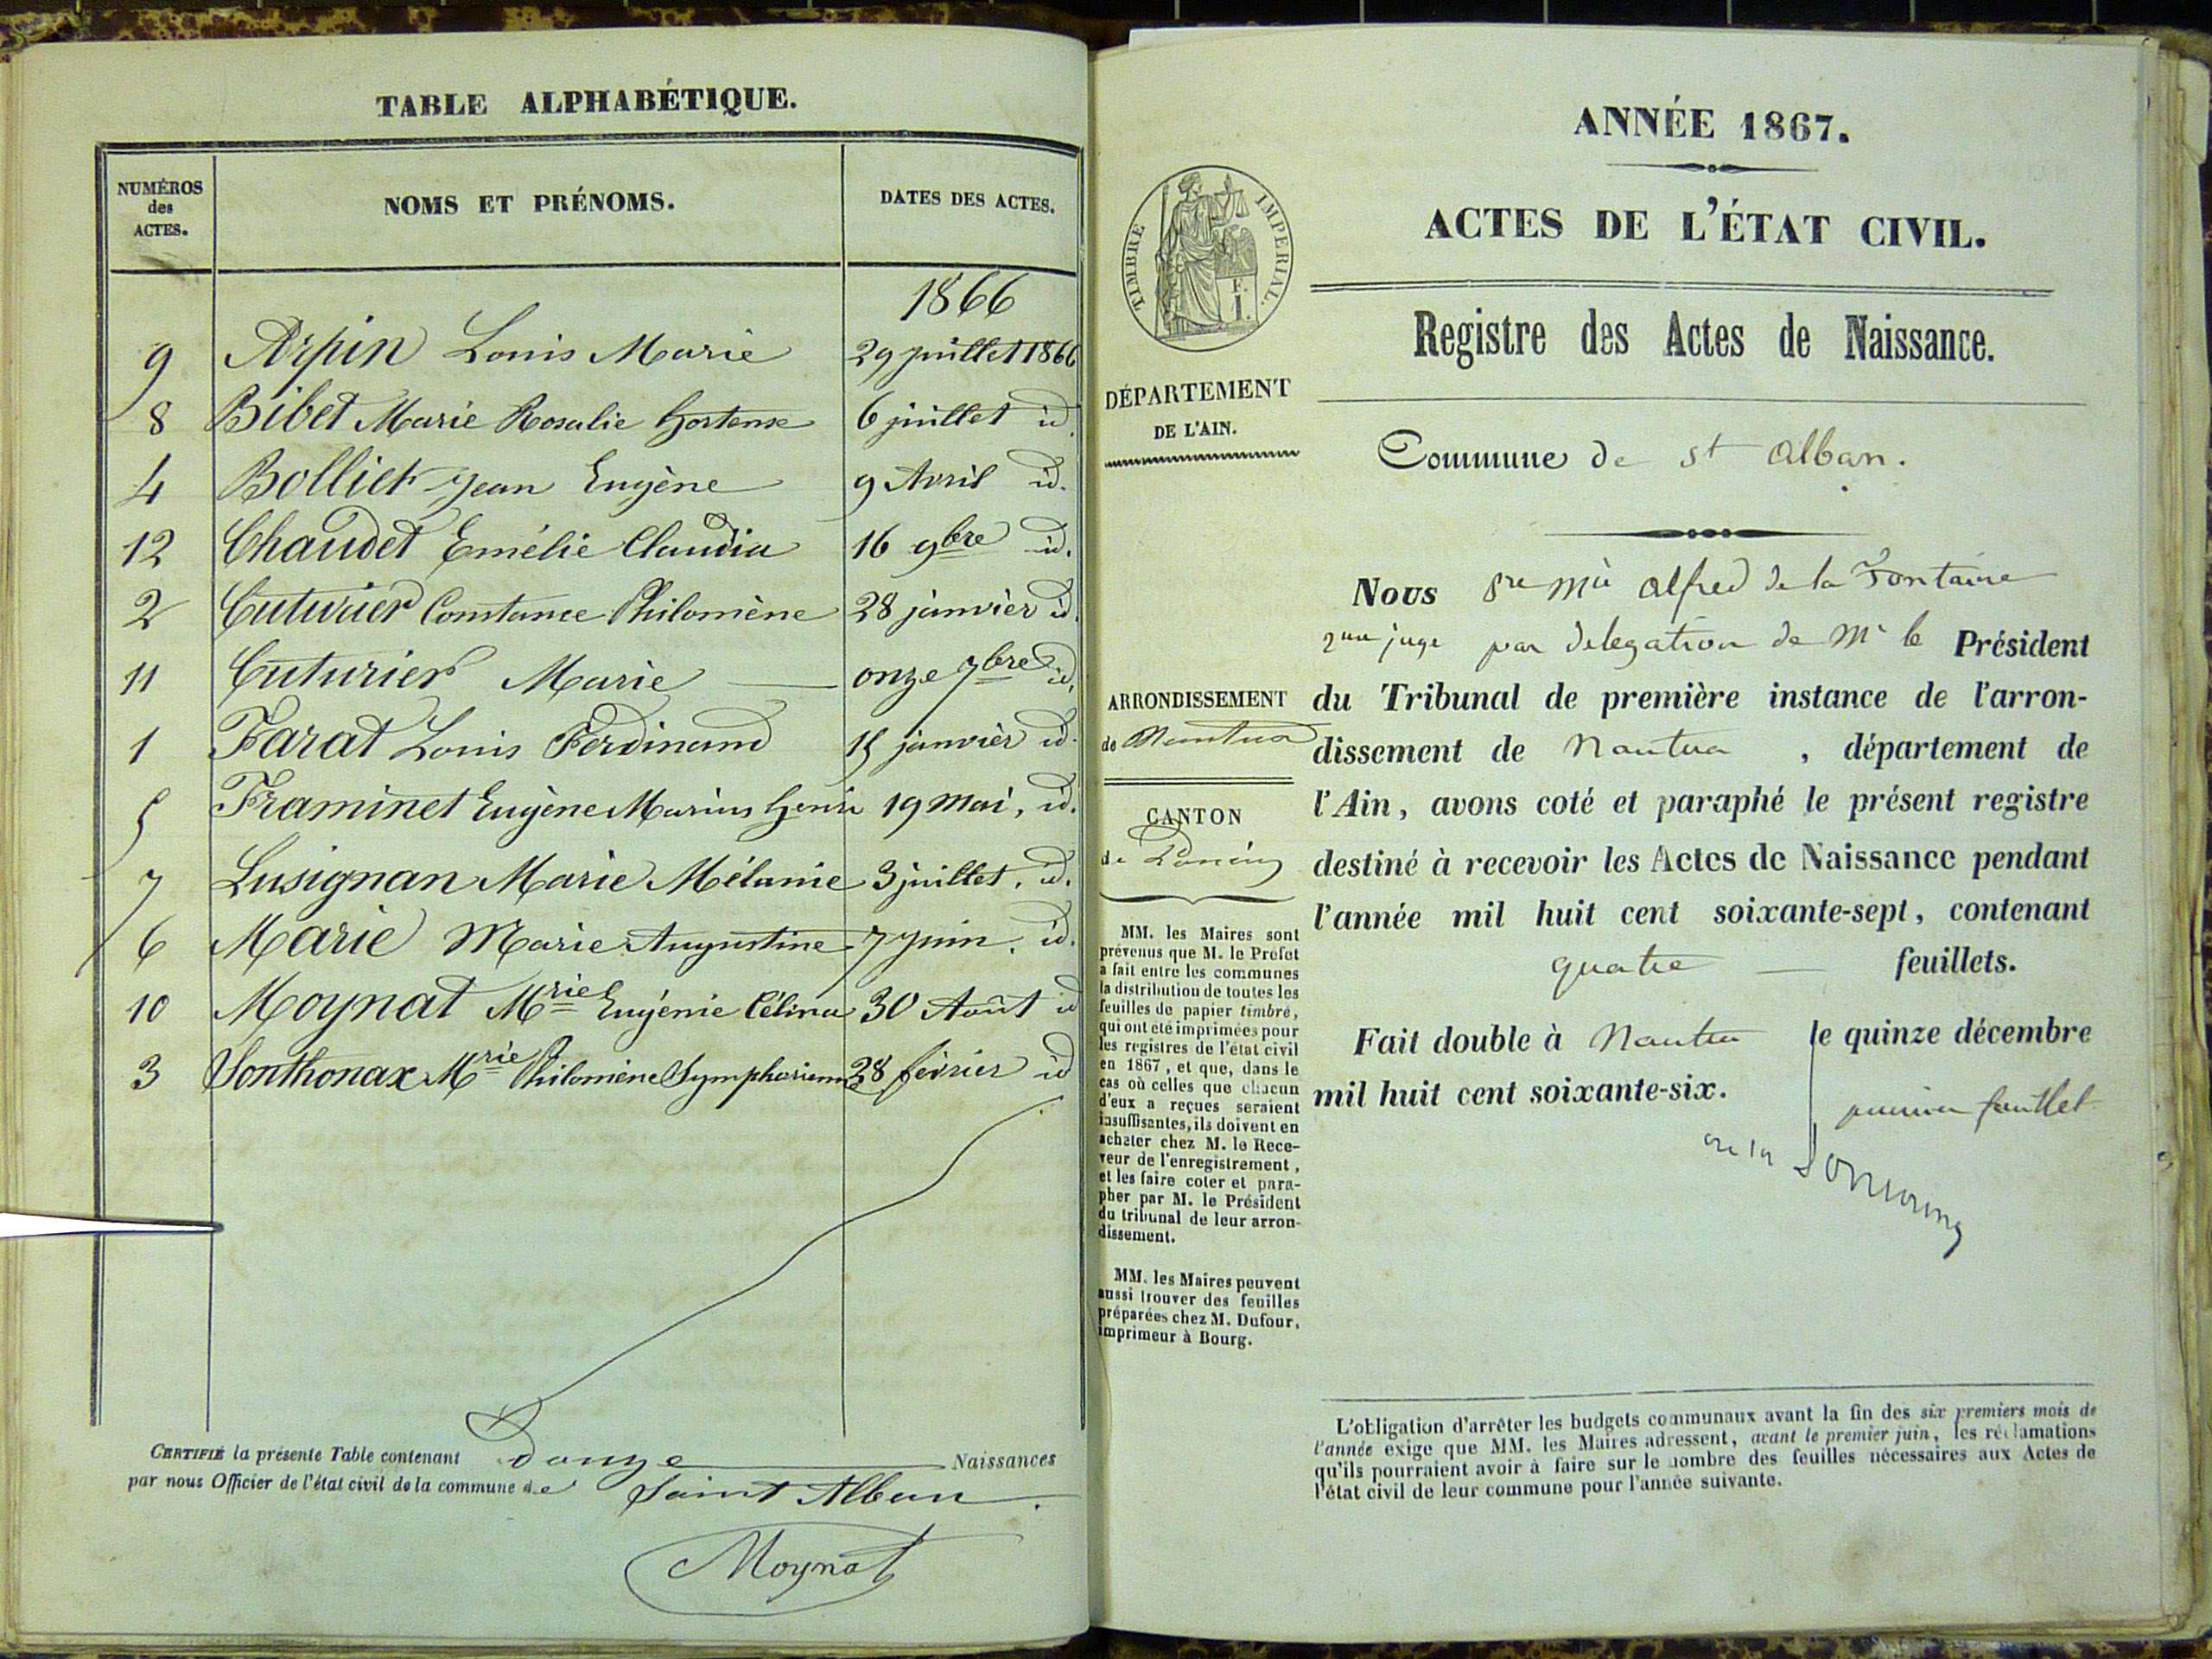 TABLE ALPHABÉTIQUE.
NUMÉROS des ACTES. NOMS ET PRÉNOMS. DATES DES ACTES.
1866
9 Arpin Louis Marie 29 juillet 1866
8 Bibet Marie Rosalie Hortense 6 juillet id.
4 Bolliet Jean Eugène 9 Avril id.
12 Chaudet Emélie Claudia 16 9bre id.
2 Cuturier Constance Philomène 28 janvier id.
11 Cuturier Marie onze 7bre id.
1 Farat Louis Ferdinand 15 janvier id.
5 Framinet Eugène Marius Henri 19 mai, id.
7 Lusignan Marie Mélanie 3 juillet, id.
6 Marie Marie Augustine 7 juin, id.
10 Moynat Mrie Eugénie Célina 30 Août id
3 Sonthonax Mrie Philomène Symphorienne 28 février id
CERTIFIÉ la présente Table contenant douze Naissances
par nous Officier de l'état civil de la commune de Saint Alban.
Moynat
ANNÉE 1867.
ACTES DE L'ÉTAT CIVIL.
Registre des Actes de Naissance.
TIMBRE IMPERIAL.
F.
1.
DÉPARTEMENT
DE L'AIN.
Commune de st Alban.
ARRONDISSEMENT
de Nantua
CANTON
de Poncin
MM. les Maires sont
prévenus que M. le Préfet
a fait entre les communes
la distribution de toutes les
feuilles de papier timbré,
qui ont été imprimées pour
les registres de l'état civil
en 1867, et que, dans le
cas où celles que chacun
d'eux a reçues seraient
insuffisantes, ils doivent en
acheter chez M. le Rece-
veur de l'enregistrement,
et les faire coter et para-
pher par M. le Président
du tribunal de leur arron-
dissement.
MM. les Maires peuvent
aussi trouver des feuilles
préparées chez M. Dufour,
imprimeur à Bourg.
Nous Alfred de la Fontaine
juge par délégation de Mr le Président
du Tribunal de première instance de l'arron-
dissement de Nantua, département de
l'Ain, avons coté et paraphé le présent registre
destiné à recevoir les Actes de Naissance pendant
l'année mil huit cent soixante-sept, contenant
quatre feuillets.
Fait double à Nantua le quinze décembre
mil huit cent soixante-six.
premier feuillet
L'obligation d'arrêter les budgets communaux avant la fin des six premiers mois de
l'année exige que MM. les Maires adressent, avant le premier juin, les réclamations
qu'ils pourraient avoir à faire sur le nombre des feuilles nécessaires aux Actes de
l'état civil de leur commune pour l'année suivante.